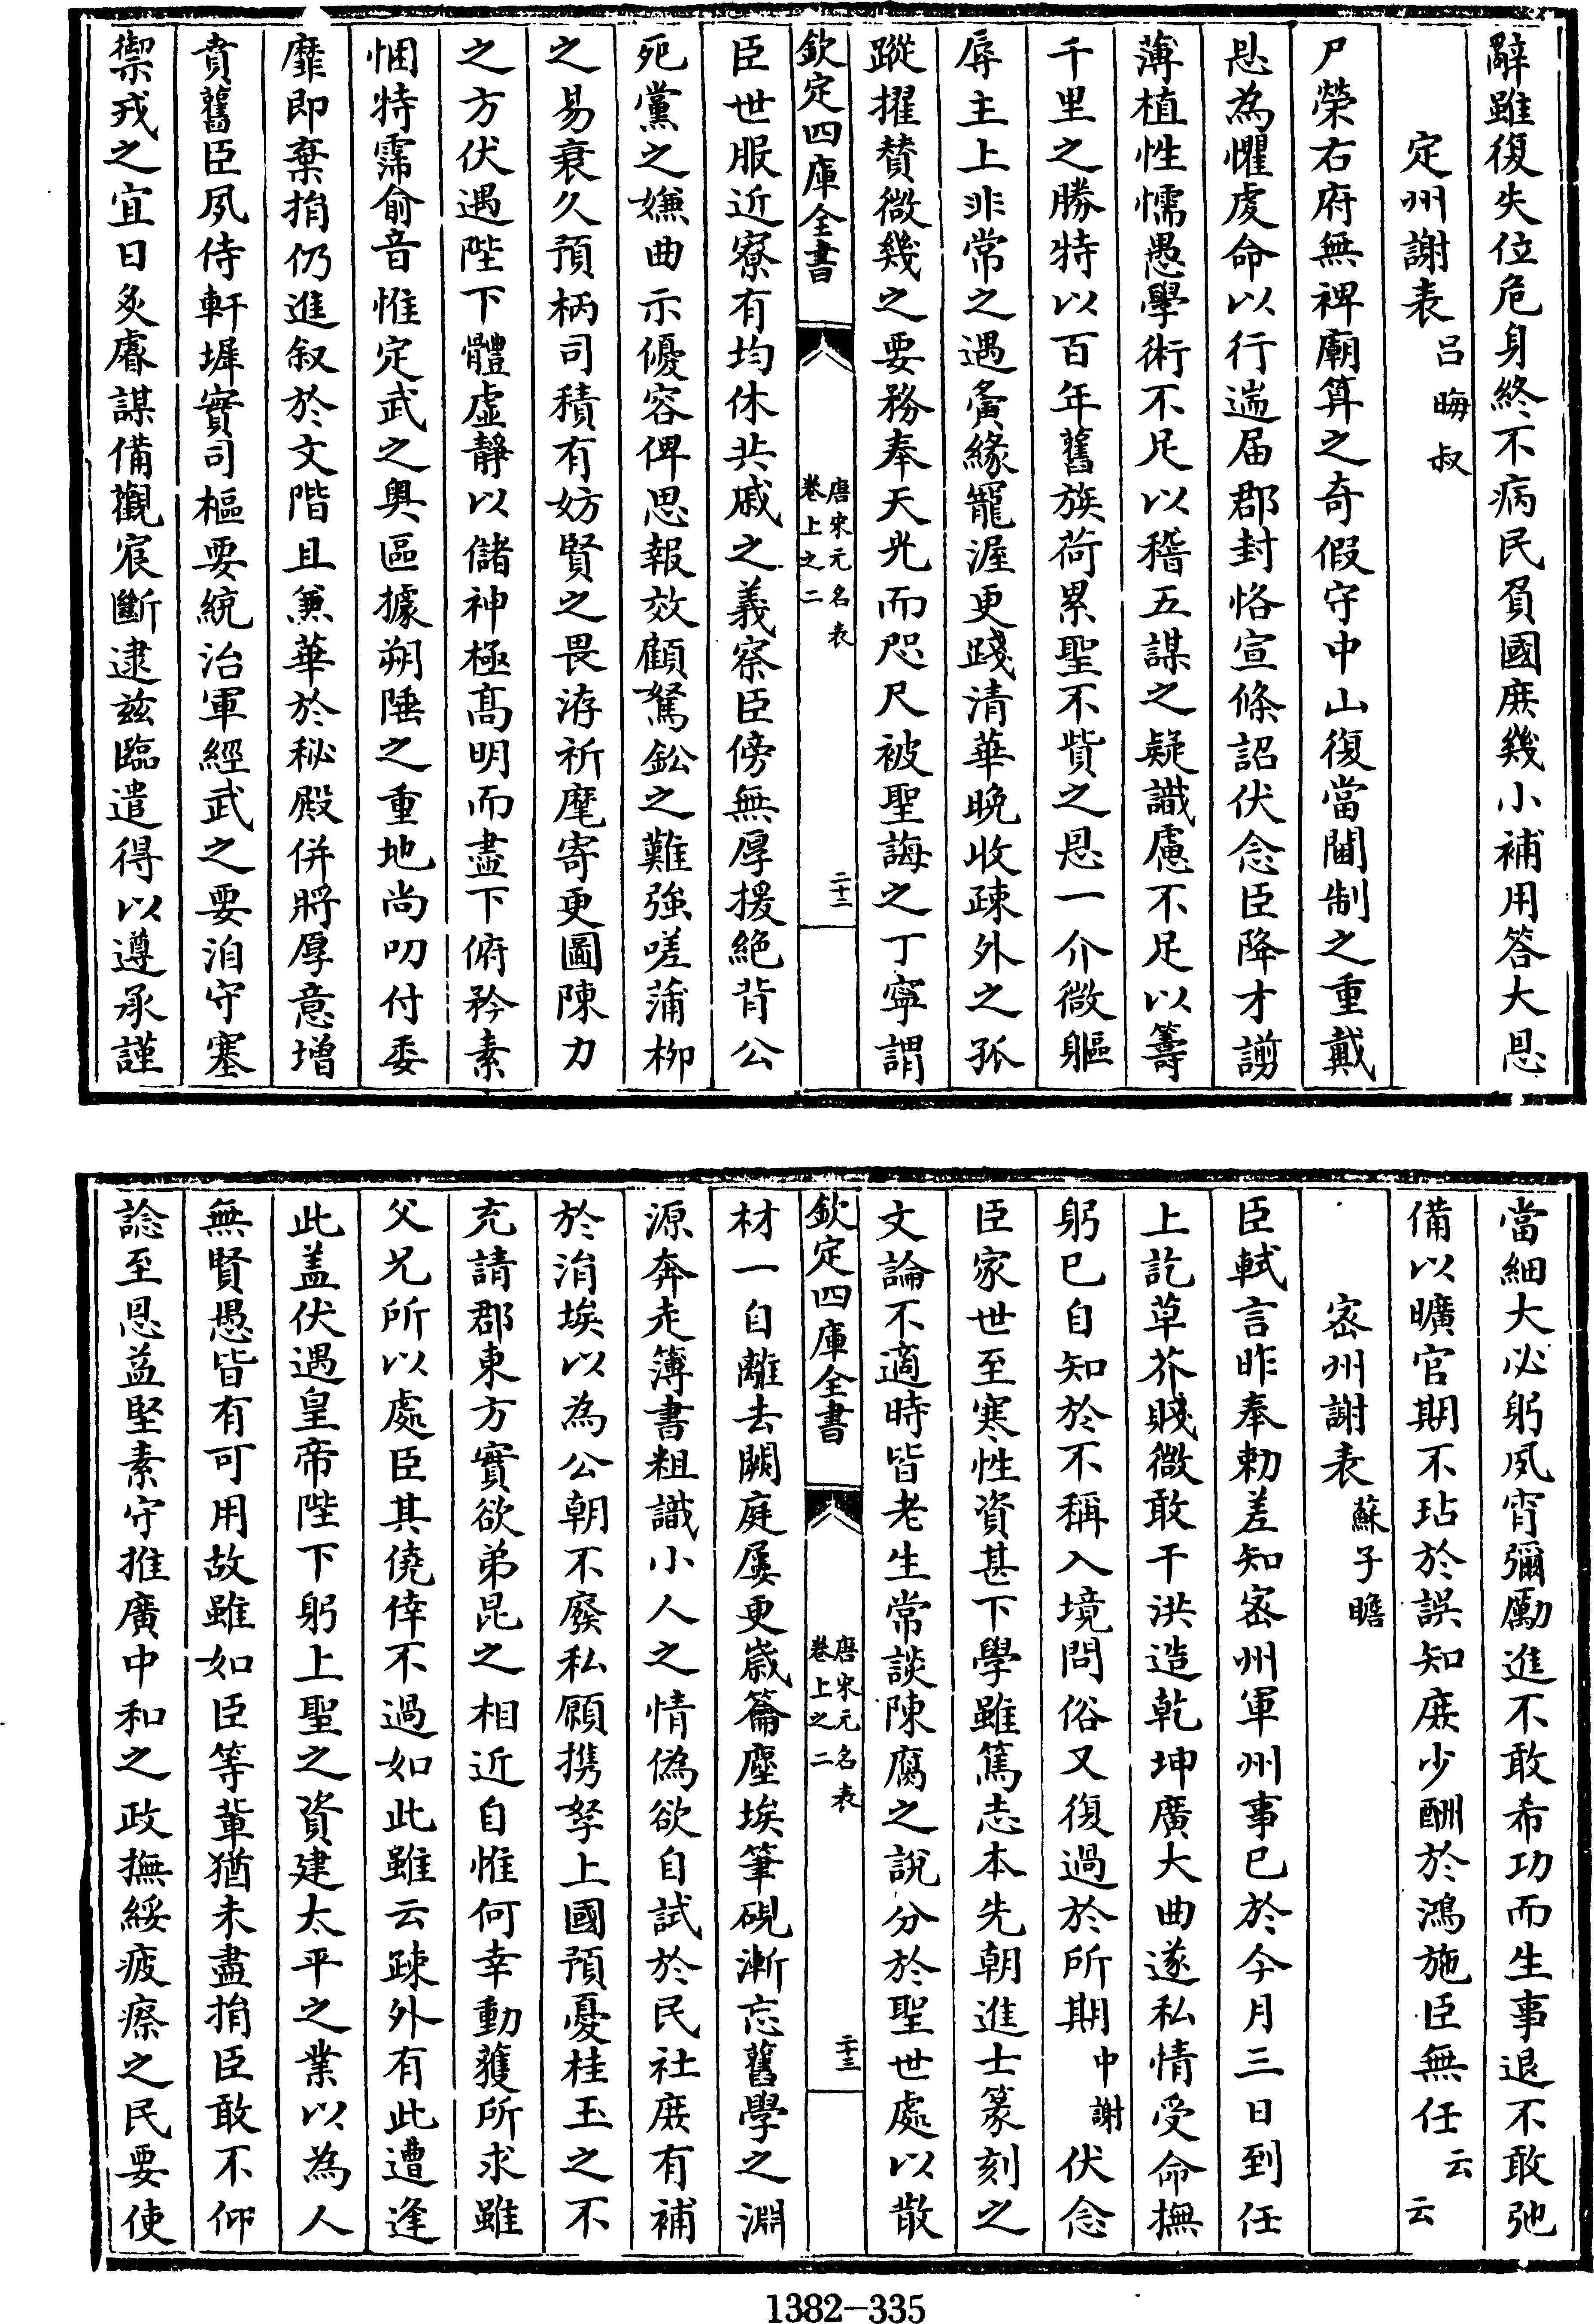 辭雖復失位危身終不病民負國庶幾小補用答大恩
定州謝表吕晦叔
尸榮右府無禆廟算之奇假守中山復當閫制之重戴
恩為懼虔命以行遄届郡封恪宣條詔伏念臣降才謭
薄植性懦愚學術不足以稽五謀之疑識慮不足以籌
千里之勝特以百年舊族荷累聖不貲之恩一介微軀
辱主上非常之遇夤緣寵渥更踐清華晩收疎外之孤
蹤擢賛微幾之要務奉天光而咫尺被聖誨之丁寧謂
欽定四庫全書
唐宋元名表
卷上之二
二十二
臣世服近寮有均休共戚之義察臣傍無厚援絶背公
死黨之嫌曲示優容俾思報效顧駑鈆之難強嗟蒲柳
之易衰久預柄司積有妨賢之畏洊祈麾寄更圖陳力
之方伏遇陛下體虚靜以儲神極髙明而盡下俯矜素
悃特霈俞音惟定武之奥區據朔陲之重地尚叨付委
靡即棄捐仍進叙於文階且兼華於秘殿併將厚意增
賁舊臣夙侍軒墀實司樞要統治軍經武之要洎守塞
禦戎之宜日炙睿謀備觀宸斷逮兹臨遣得以遵承謹
當細大必躬夙宵彌勵進不敢希功而生事退不敢弛
備以曠官期不玷於誤知庶少酬於鴻施臣無任云云
宻州謝表蘇子瞻
臣軾言昨奉勅差知宻州軍州事已於今月三日到任
上訖草芥賤微敢干洪造乾坤廣大曲遂私情受命撫
躬已自知於不稱入境問俗又復過於所期中謝伏念
臣家世至寒性資甚下學雖篤志本先朝進士篆刻之
文論不適時皆老生常談陳腐之說分於聖世處以散
欽定四庫全書
唐宋元名表
卷上之二
二十三
材一自離去闕庭屢更嵗籥塵埃筆硯漸忘舊學之淵
源奔走簿書粗識小人之情偽欲自試於民社庶有補
於涓埃以為公朝不廢私願携孥上國預憂桂玉之不
充請郡東方實欲弟昆之相近自惟何幸動獲所求雖
父兄所以處臣其僥倖不過如此雖云疎外有此遭逢
此盖伏遇皇帝陛下躬上聖之資建太平之業以為人
無賢愚皆有可用故雖如臣等輩猶未盡捐臣敢不仰
諗至恩益堅素守推廣中和之政撫綏疲瘵之民要使
1382-335